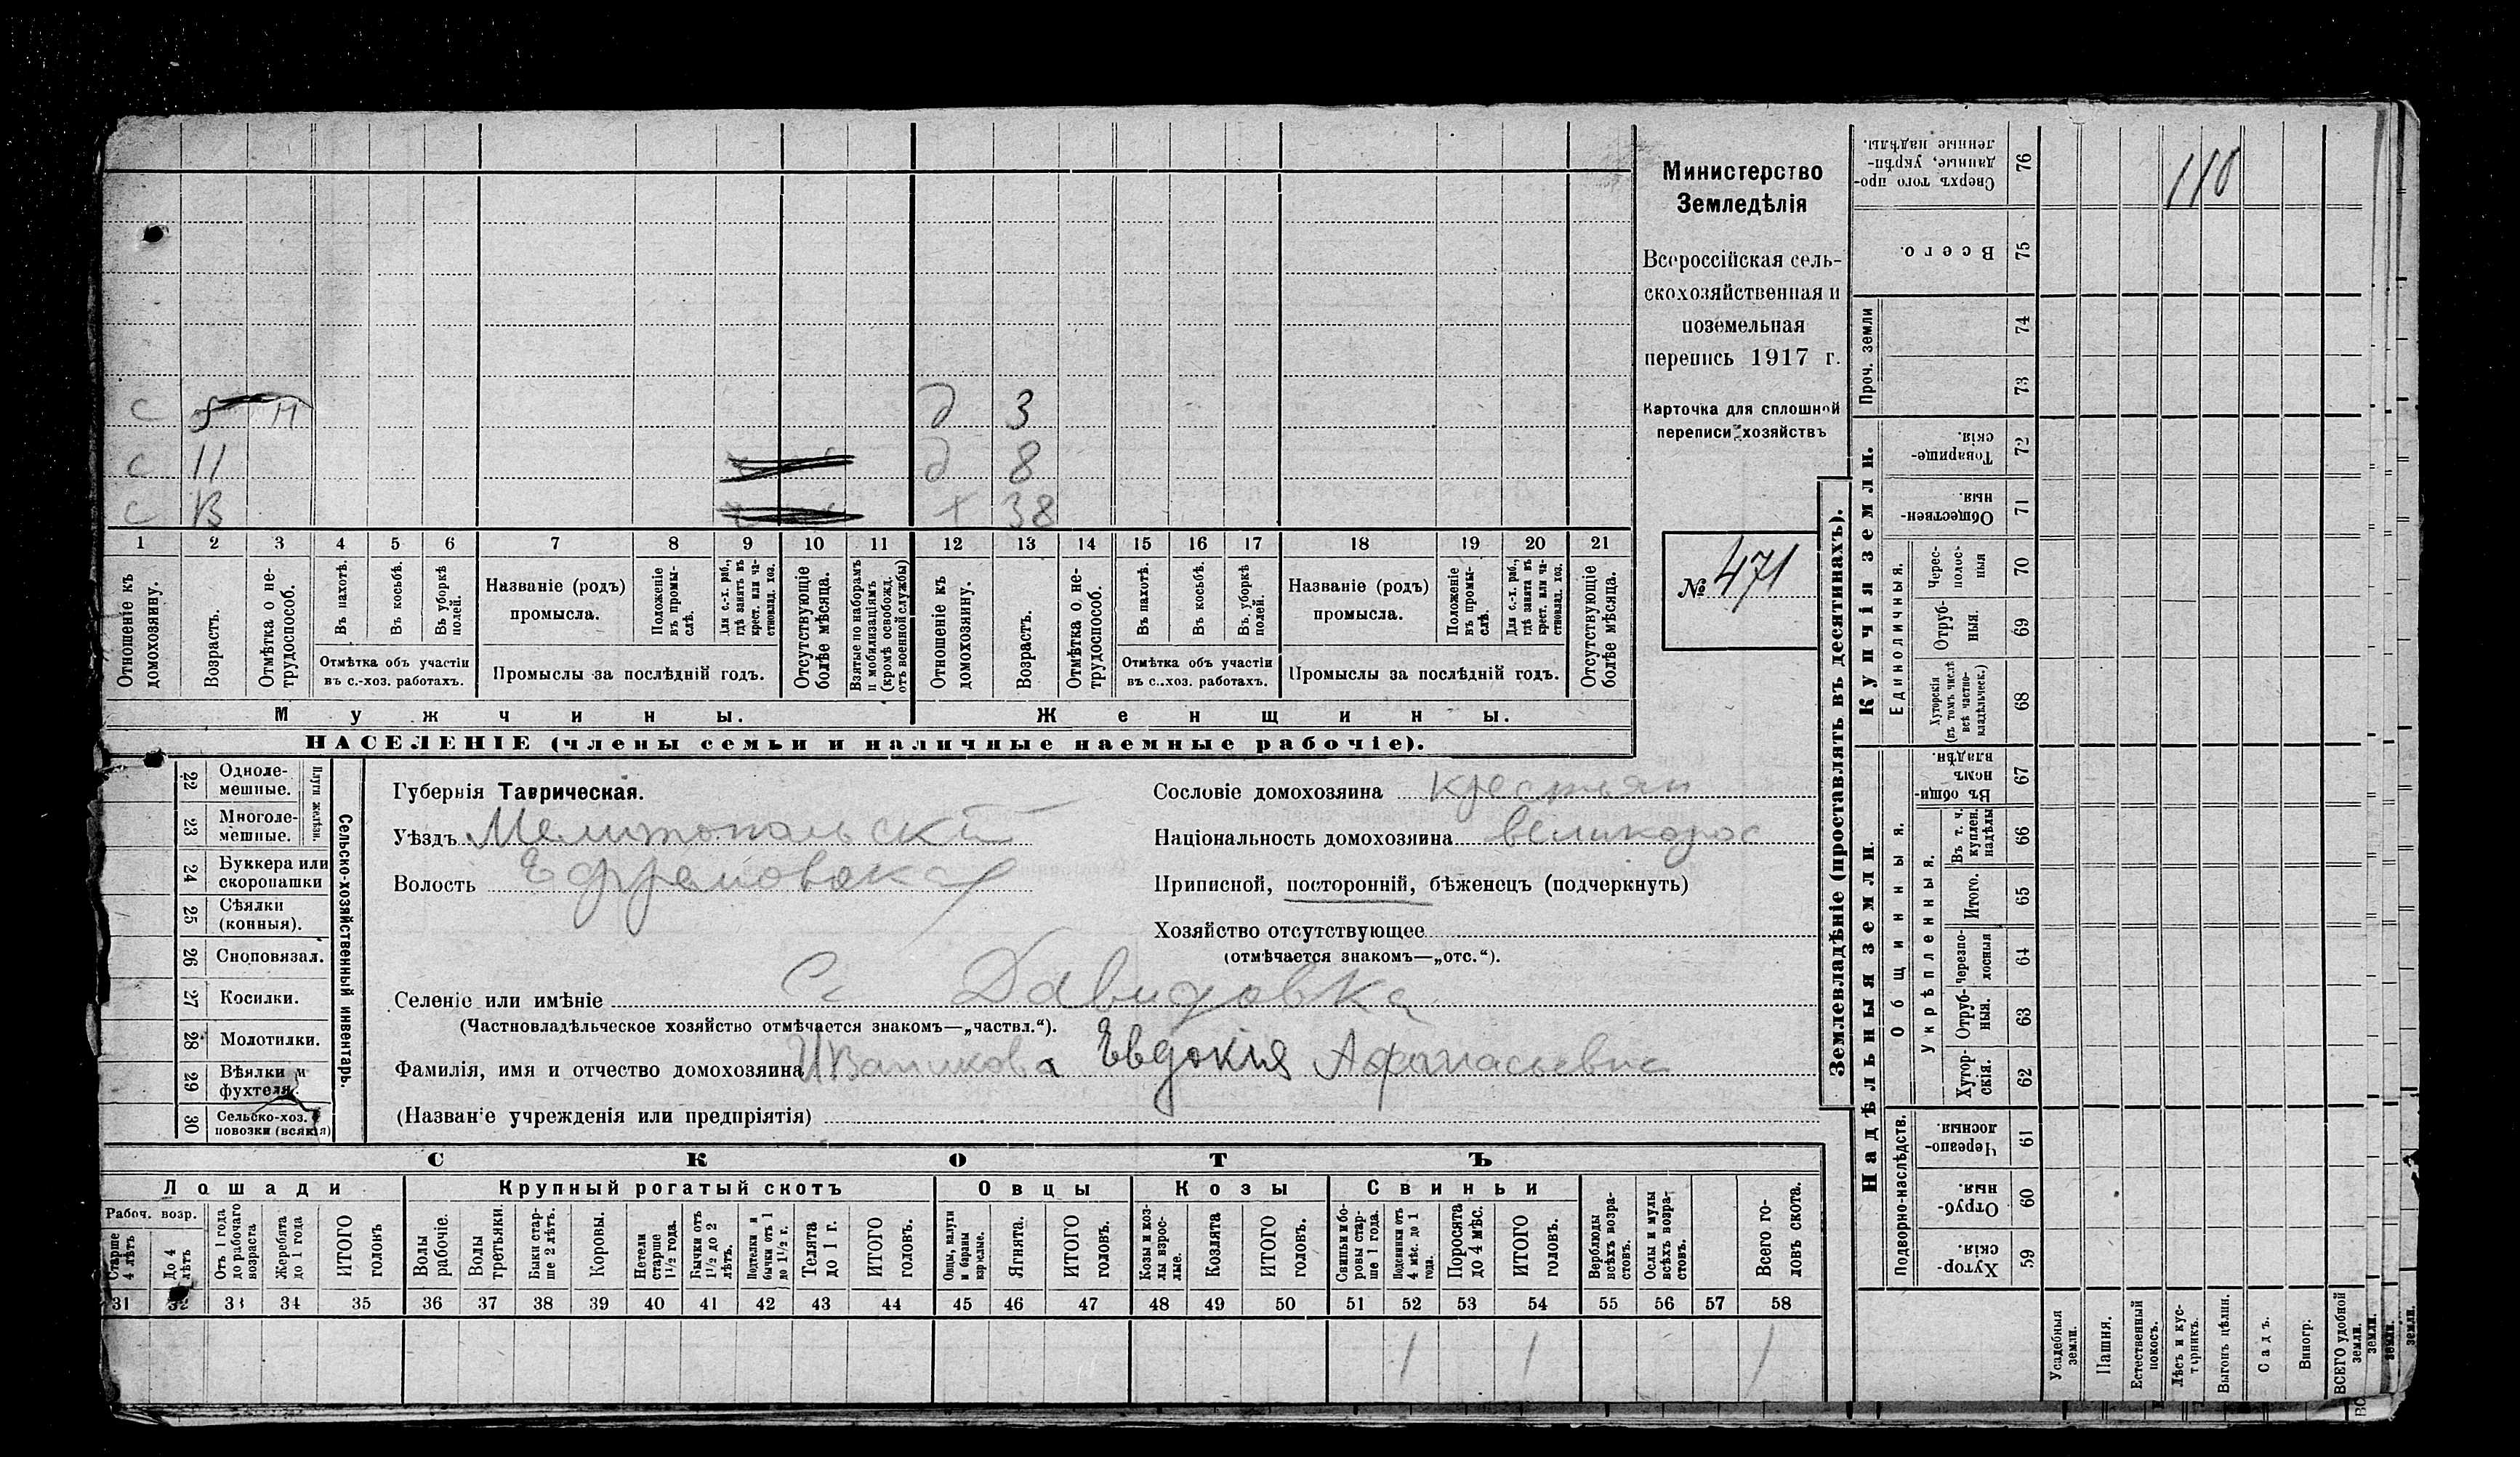 Министерство
Земледѣлія
Всероссійская сель-
скохозяйственная и
поземельная
перепись 1917 г.
Карточка для сплошной
переписи хозяйствъ
№ 471
с 5 н д 3
с 11 д 8
с 13 х 38
1 2 3 4 5 6 7 8 9 10 11 12 13 14 15 16 17 18 19 20 21
Отношеніе къ домохозяину.
Возрастъ.
Отмѣтка о не-трудоспособ.
Въ пахотѣ.
Въ косьбѣ.
Въ уборкѣ полей.
Отмѣтка объ участіи
въ с.-хоз. работахъ.
Названіе (родъ)
промысла.
Положеніе въ промы-слѣ.
Для с.-х. раб., гдѣ занятъ въ крест. или ча-стновлад. хоз.
Промыслы за послѣдній годъ.
Отсутствующіе болѣе мѣсяца.
Взятые по наборамъ и мобилизаціямъ (кромѣ освобожд. отъ военной службы)
Отношеніе къ домохозяину.
Возрастъ.
Отмѣтка о не-трудоспособ.
Въ пахотѣ.
Въ косьбѣ.
Въ уборкѣ полей.
Отмѣтка объ участіи
въ с.-хоз. работахъ.
Названіе (родъ)
промысла.
Положеніе въ промы-слѣ.
Для с.-х. раб., гдѣ занята въ крест. или ча-стновлад. хоз.
Промыслы за послѣдній годъ.
Отсутствующіе болѣе мѣсяца.
Мужчины. Женщины.
НАСЕЛЕНІЕ (члены семьи и наличные наемные рабочіе).
Сельско-хозяйственный инвентарь.
Плуги желѣзн.
22 Одноле-мешные.
23 Многоле-мешные.
24 Буккера или скоропашки
25 Сѣялки (конныя).
26 Сноповязал.
27 Косилки.
28 Молотилки.
29 Вѣялки и фухтеля.
30 Сельско-хоз. повозки (всякія)
Губернія Таврическая.
Уѣздъ Мелитопольскій
Волость Ефремовская
Сословіе домохозяина крестьян
Національность домохозяина великорос
Приписной, посторонній, бѣженецъ (подчеркнуть)
Хозяйство отсутствующее
(отмѣчается знакомъ—„отс.“).
Селеніе или имѣніе С. Давидовка
(Частновладѣльческое хозяйство отмѣчается знакомъ—„частвл.“).
Фамилія, имя и отчество домохозяина Иваникова Евдокія Афанасьевна
(Названіе учрежденія или предпріятія)
СКОТЪ
Лошади Крупный рогатый скотъ Овцы Козы Свиньи
Рабоч. возр.
Старше 4 лѣтъ
До 4 лѣтъ
Отъ 1 года до рабочаго возраста
Жеребята до 1 года
ИТОГО головъ
Волы рабочіе.
Волы третьяки.
Быки стар-ше 2 лѣтъ.
Коровы.
Нетели старше 1½ года.
Бычки отъ 1½ до 2 лѣтъ.
Подтелки и бычки отъ 1 до 1½ г.
Телята до 1 г.
ИТОГО головъ.
Овцы, валухи и бараны взрослые.
Ягнята.
ИТОГО головъ.
Козы и коз-лы взрос-лые.
Козлята
ИТОГО головъ.
Свиньи и бо-ровы стар-ше 1 года.
Подсвинки отъ 4 мѣс. до 1 года.
Поросята до 4 мѣс.
ИТОГО головъ.
Верблюды всѣхъ возра-стовъ.
Ослы и мулы всѣхъ возра-стовъ.
Всего го-ловъ скота.
31 32 33 34 35 36 37 38 39 40 41 42 43 44 45 46 47 48 49 50 51 52 53 54 55 56 57 58
1 1 1
Землевладѣніе (проставлять въ десятинахъ).
Купчія земли.
Надѣльныя земли.
Сверхъ того про-данные, укрѣп-ленные надѣлы. 76
110
Всего. 75
Проч. земли
74
73
Товарище-скія. 72
Обществен-ныя. 71
Единоличныя.
Черес-полос-ныя 70
Отруб-ныя. 69
Хуторскія (въ томъ числѣ всѣ частно-владѣльческ.) 68
Общинныя.
Въ общин-номъ владѣн. 67
Укрѣпленныя.
Въ т. ч. куплен. надѣлы 66
Итого. 65
Черезпо-лосныя 64
Отруб-ныя. 63
Хутор-скія. 62
Подворно-наслѣдств.
Черезпо-лосныя. 61
Отруб-ныя. 60
Хутор-скія. 59
Усадебныя земли.
Пашня.
Естественный покосъ.
Лѣсъ и кус-тарникъ.
Выгонъ цѣлин.
Садъ.
Виногр.
ВСЕГО удобной земли.
земли.
земли.
земли.